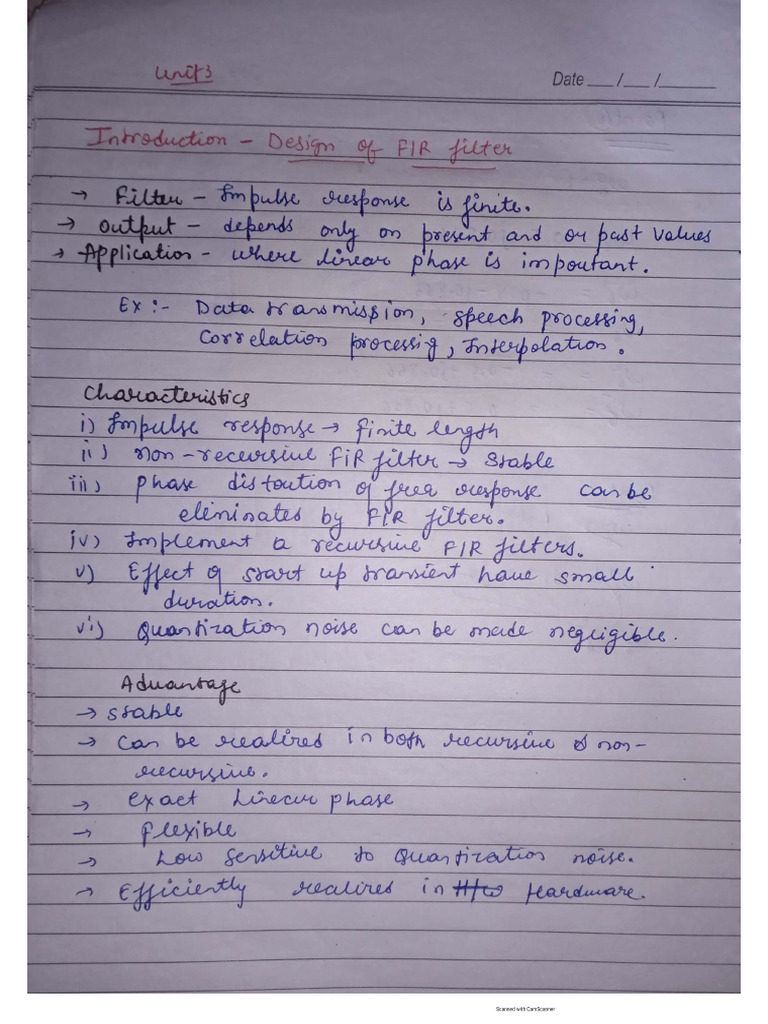 Unit 3
Date __ / __ / ____
Introduction - Design of FIR filter
→ Filter - Impulse response is finite.
→ Output - depends only on present and or past values
→ Application - where linear phase is important.
Ex :- Data transmission, speech processing,
Correlation processing, Interpolation.
Characteristics
i) Impulse response → finite length
ii) non-recursive FiR filter → Stable
iii) Phase distoution of freq response can be
eliminates by FIR filter.
iv) Implement a recursive FIR filters.
v) Effect of start up transient have small
duration.
vi) Quantization noise can be made negligible.
Advantage
→ stable
→ Can be realizes in both recursive & non-
recursive.
→ exact Linear phase
→ Flexible
→ Low sensitive to Quantization noise.
→ Efficiently realizes in H/w Hardware.
Scanned with CamScanner